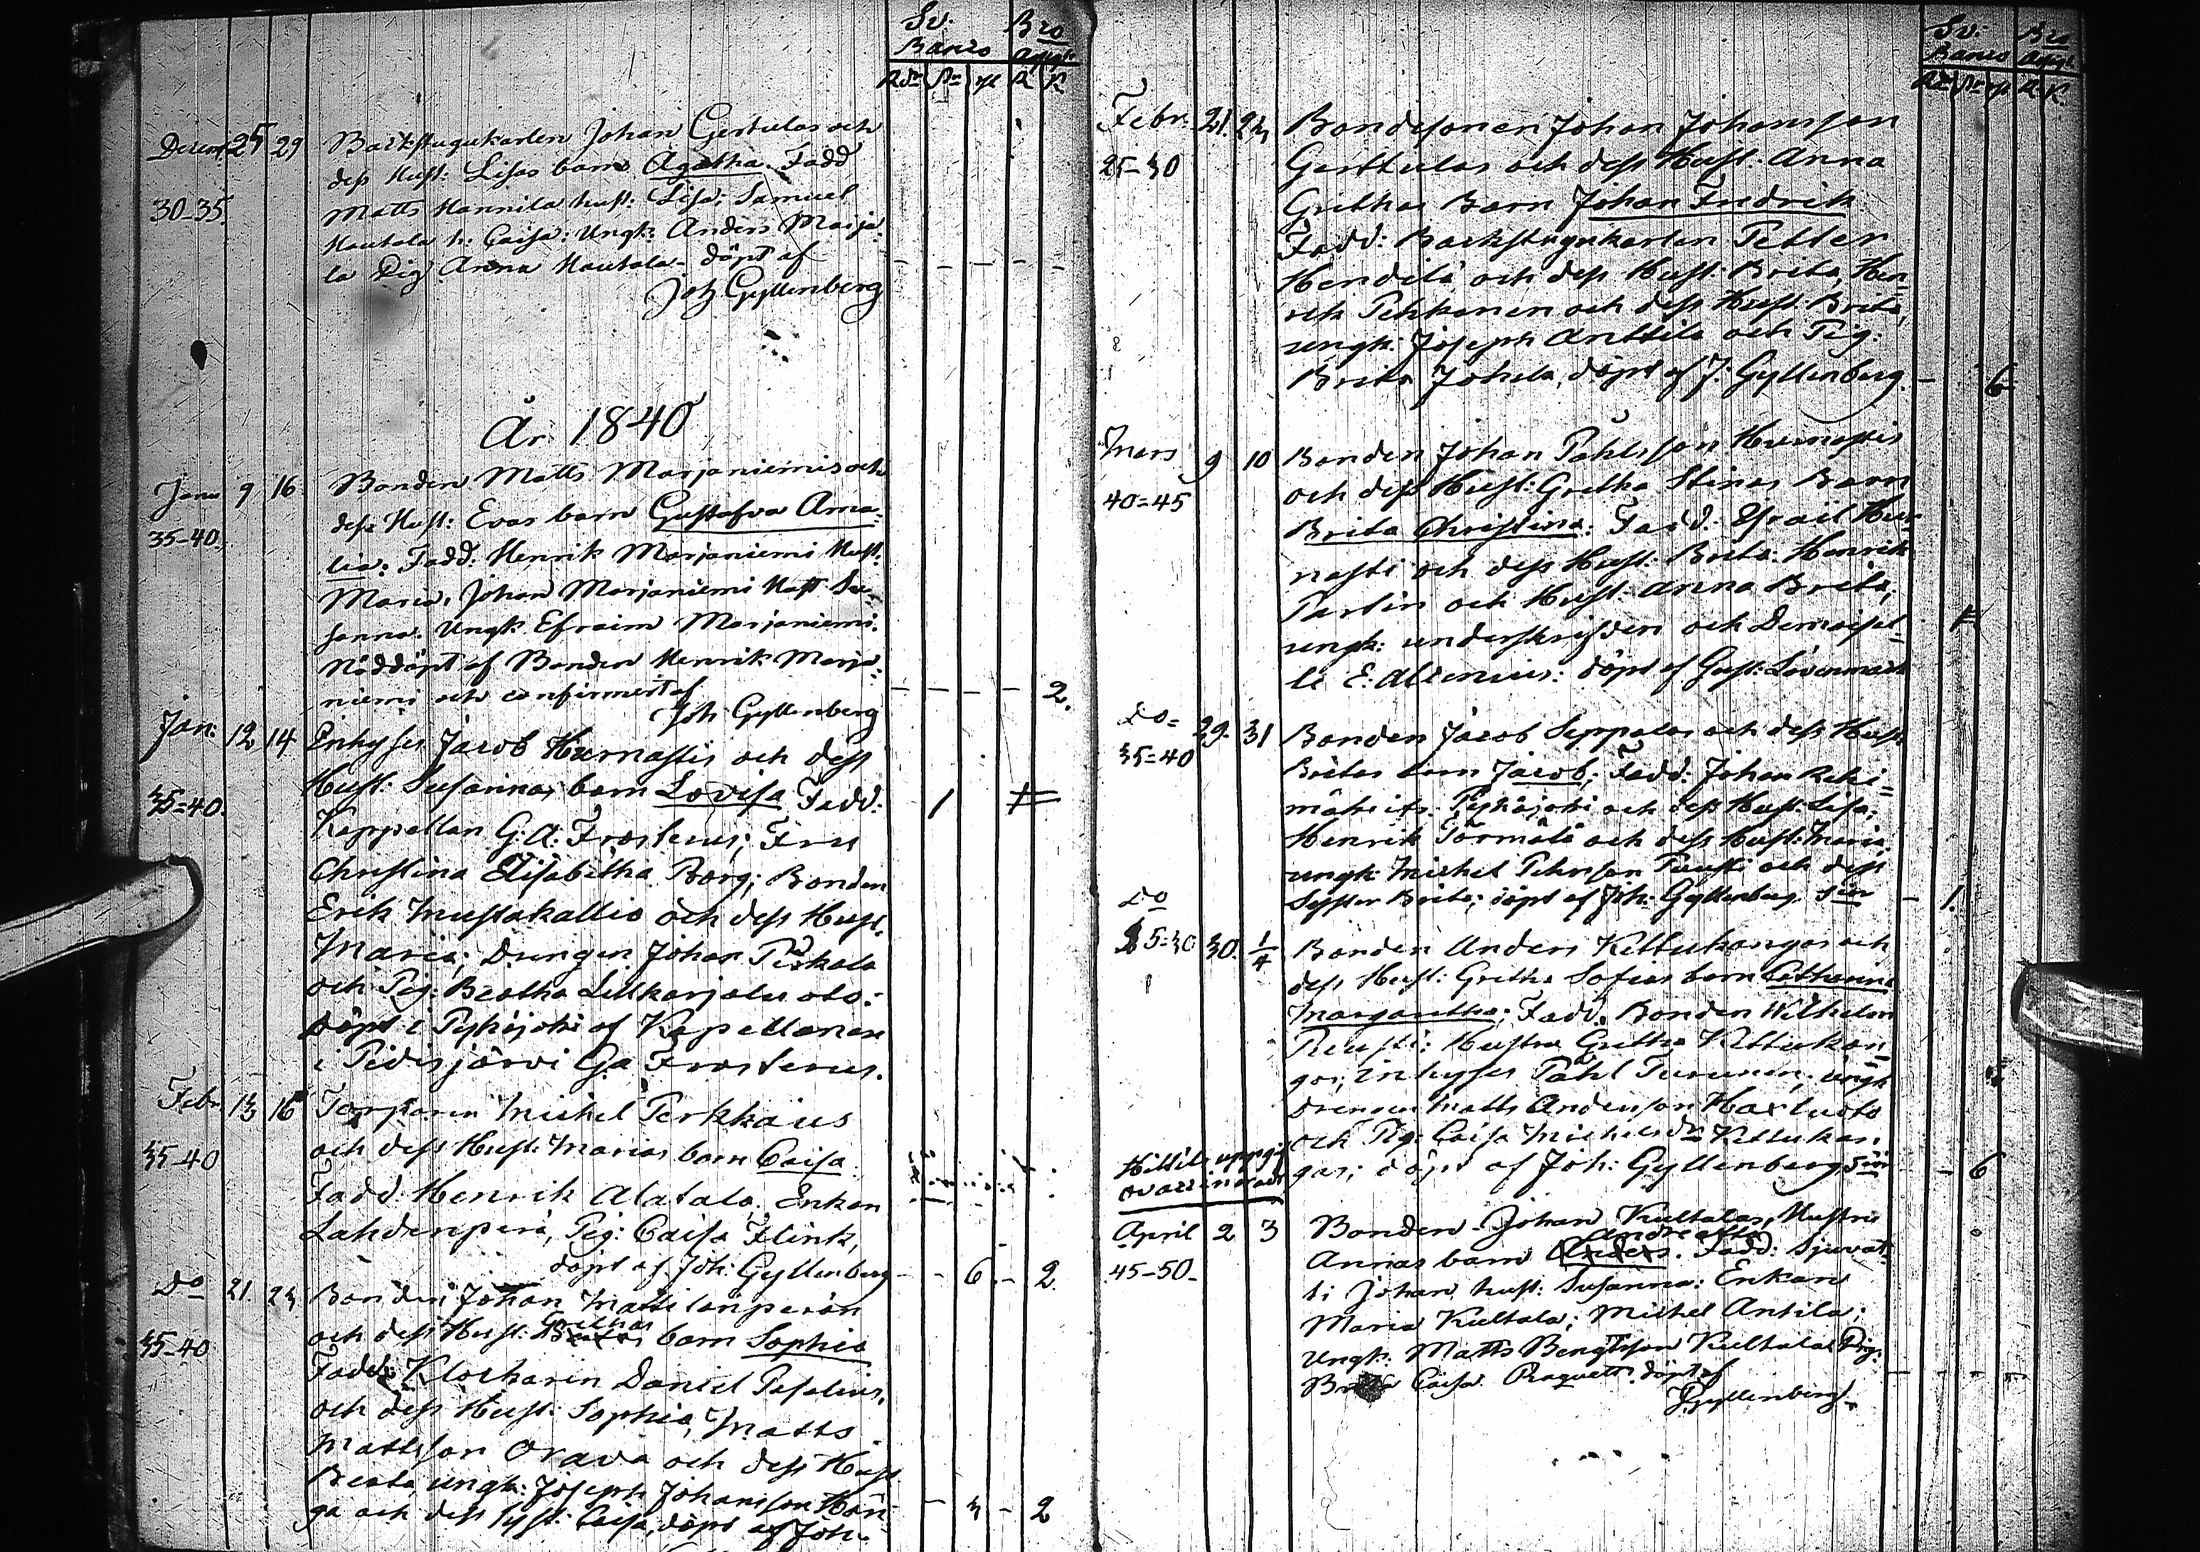 Sv. Bro
Banco
Rdr sk rst R K
Decem 25 29 Backstugukarlen Johan Gertulas och
dess Hust: Lisas barn Agatha. Fadd
30-35 Matts Hannila hust: Lisa; Samuel
Hautala h: Caisa: Ungk: Anders Marja-
la Pig Anna Hautala. döpt af
Joh Gyllenberg
År 1840
Janu 9 16 Bonden Matts Marjaniemis och
dess Hust: Evas barn Gustafva Ama-
35-40. lia: Fadd: Henrik Marjaniemi Hust:
Maria, Johan Marjaniemi Hust Su-
sanna. Ungk Efraim Marjaniemi.
Nöddöpt af Bonden Henrik Marja-
niemi och confirmert af 2.
Joh Gyllenberg
Jan: 12 14 Inhyses Jacob Hurnastis och dess
Hust: Susannas barn Lovisa Fadd: 1
35=40. Kappellan G: A: Frosterus; Fru
Christina Elisabetha Borg; Bonden
Erik Mustakallio och dess Hust.
Maria; Drengen Johan Piskala
och Pig: Beatha
döpt i Pyhäjoki af Kapellanen
i Pidisjärvi G A Frosterus.
Febr 13 16 Torparen Michel Perkkäus
35-40 och dess Hust: Marias barn Caisa
Fadd: Henrik Alatalo. Enkan
Lahdenperä, Pig: Caisa Flink,
döpt af Joh: Gyllenberg 6 - 2.
Do 21. 23 Bonden Johan Mattilanperän
Grethas
35-40 och dess Hust: barn Sophia
Fadd: Klockarin Daniel
och dess Hust: Sophia, Matts
Mattsson Orava och dess Hust
Beata, ungk: Joseph Johansson Han-
ga och dess syst: Caisa, döpt af Joh. - 3 - 2
Sv: Bro
Banco
Febr: 21. 23 Bondesonen Johan Johansson
25-30 Gerttulas och dess Hust: Anna
Grethas Barn Johan Fredrik
Fadd: Backstugukarlen Petter
Hendilä och dess Hust: Brita, Hen-
rik Pehkonen och dess Hust: Brita,
ungk: Joseph Anttila och Pig:
Brita Johila, döpt af J: Gyllenberg. - 6
Mars 9 10 Bonden Johan Påhlsson Hurnastis
40=45 och dess Hust: Gretha Stinas Barn
Brita Christina: Fadd: Esrail Hur-
nasti och dess Hust: Brita: Henrik
och Hust: Anna Brita,
ungk: underskrifven och Demoisel-
le E: Alcenius: döpt af Gust: Lövenmark
Do= 29. 31 Bonden Jacob Seppälas och dess Hust
35=40 Britas barn Jacob; Fadd: Johan
Pyhäjoki och dess Hust: Lisa;
Henrik Törmälä och dess Hust: Maria,
ungk: Michel Pehrson och dess
Syster Brita; döpt af Joh: Gyllenberg - 1.
Do 30. 1/4 Bonden Anders Kettukangas och
dess Hust: Gretha Sofias barn Catharina
Margaretha; Fadd. Bonden Wilhelm
Hustru Gretha Kettukan-
gas; inhyses Påhl Turunen, ungk
drengen Matts Andersson Haxluoto
och Pig: Caisa Michelsdr Kettukan-
gas; döpt af Joh: Gyllenberg - 6
Hittils uppgif
April 2 3 Bonden Johan Kultalas, Hustru
Andreatta
45-50- Annas barn Anders. Fadd: Sjuvat-
ti Johan, hust: Susanna: Enkan
Maria Kultala; Michel Antila;
Ungk: Matts Bengtsson Kultala Pig:
Brita Caisa döpt af
J Gyllenberg.